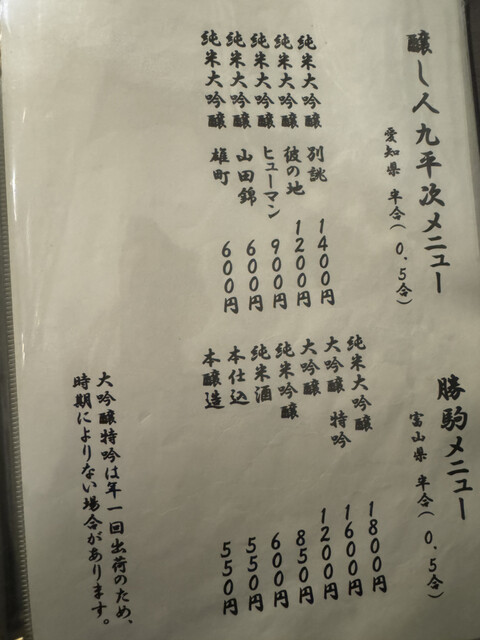 醸し人九平次メニュー
愛知県 半合(0.5合)
純米大吟醸 別誂 1400円
純米大吟醸 彼の地 1200円
純米大吟醸 ヒューマン 900円
純米大吟醸 山田錦 600円
純米大吟醸 雄町 600円
勝駒メニュー
富山県 半合(0.5合)
純米大吟醸 1800円
大吟醸 特吟 1600円
大吟醸 1200円
純米吟醸 850円
純米酒 600円
本仕込 550円
本醸造 550円
大吟醸特吟は年一回出荷のため、
時期によりない場合があります。